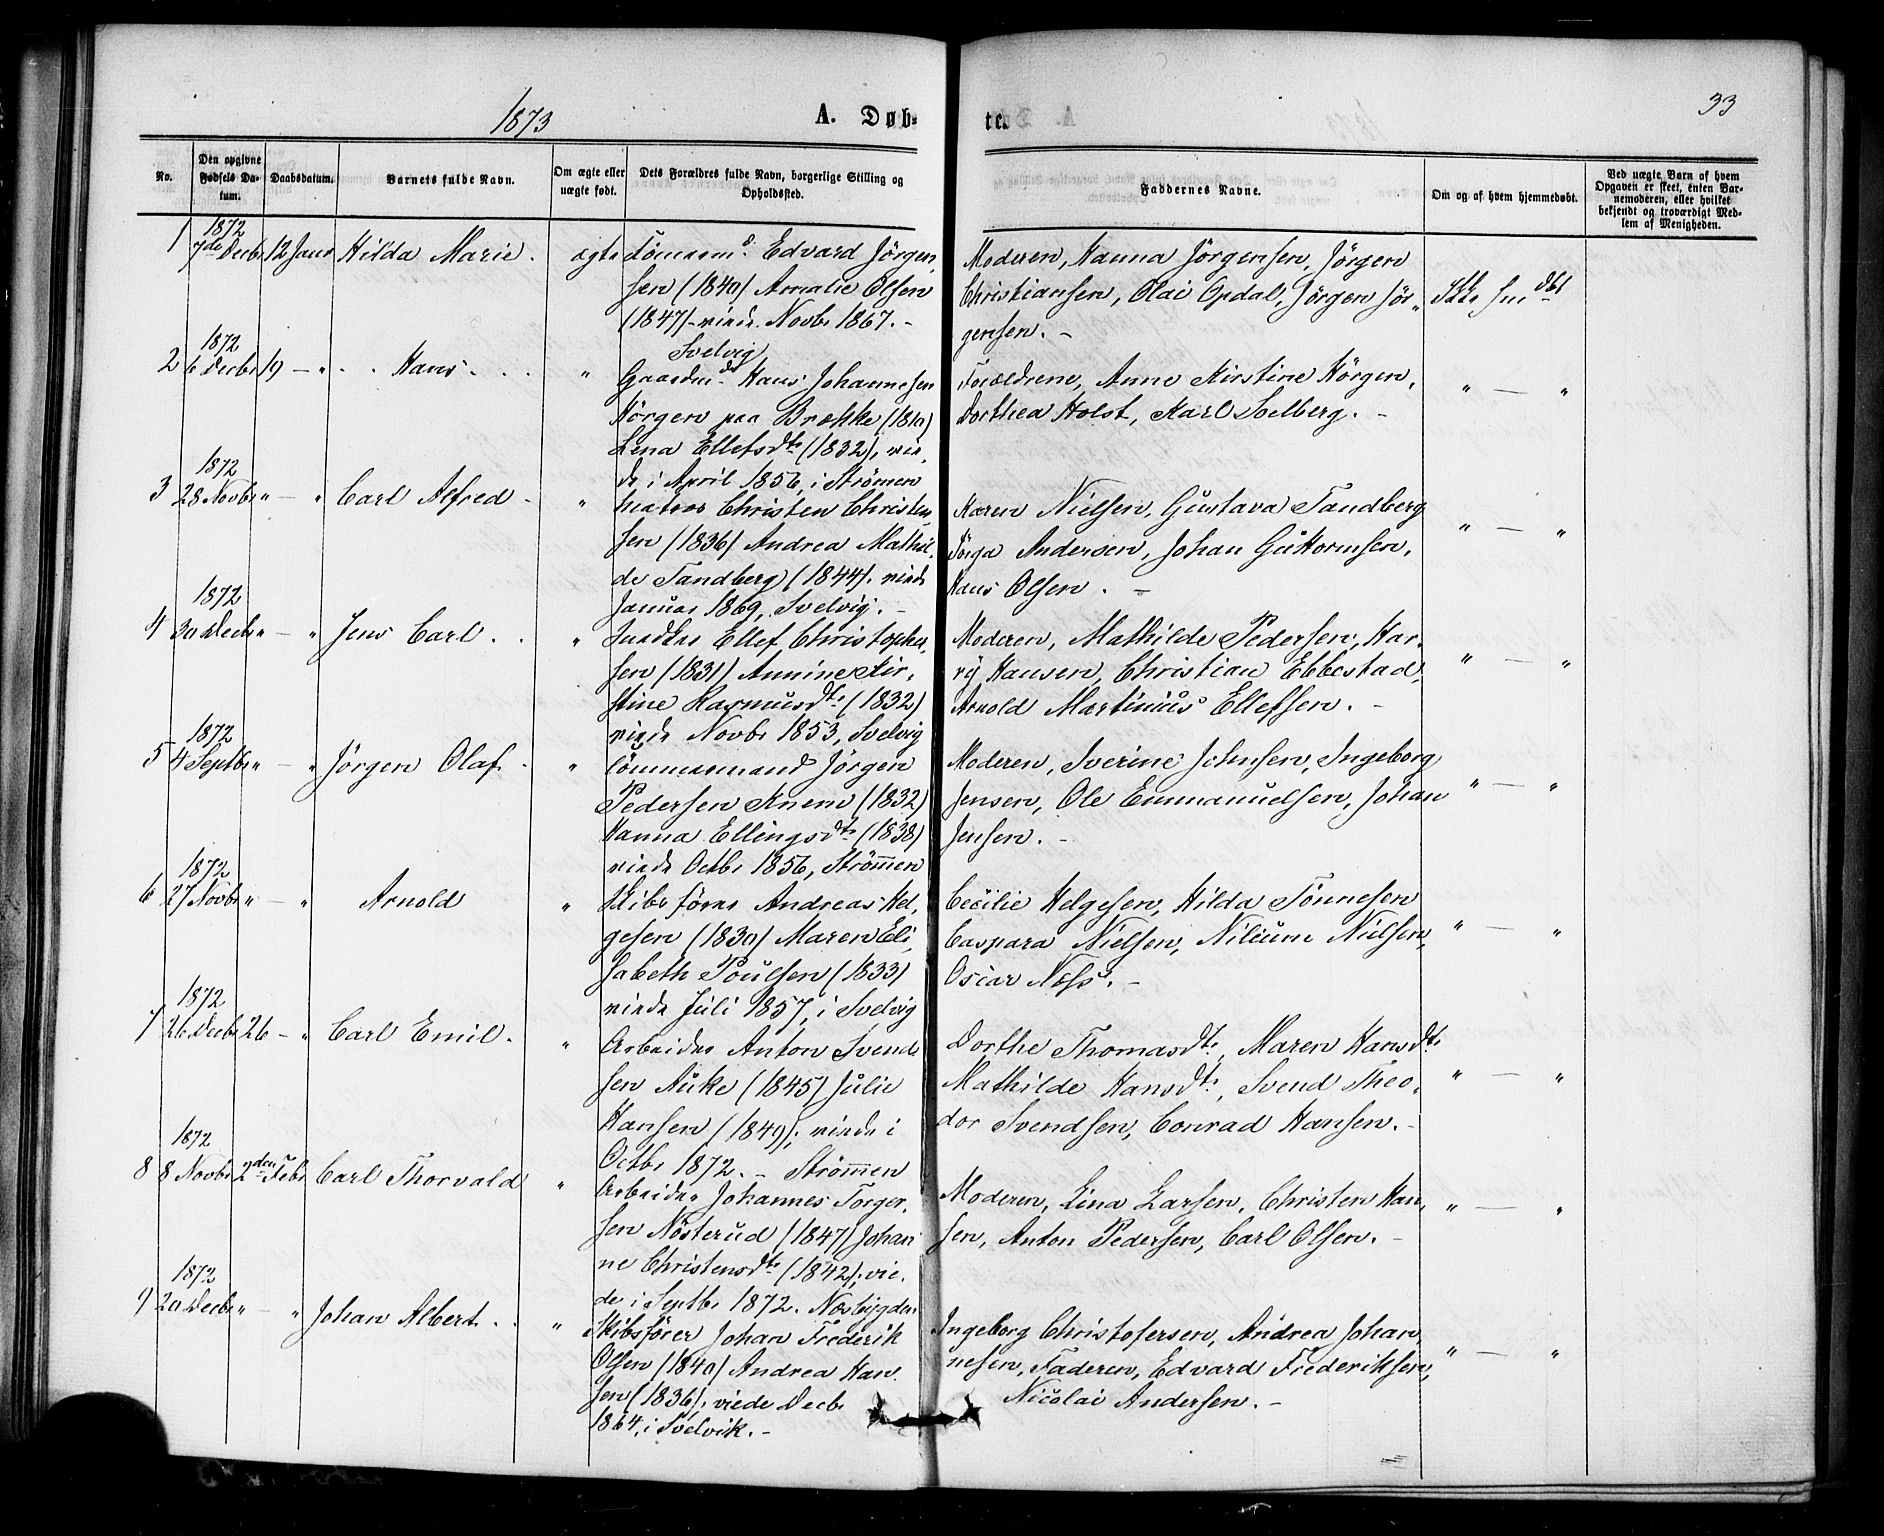 1873
A. Døb-
te.
33
No.
Den opgivne Fødsels Da-
tum.
Daabsdatum.
Barnets fulde Navn.
Om ægte eller
uægte født.
Dets Forældres fulde Navn, borgerlige Stilling og
Opholdssted.
Faddernes Navne.
Om og af hvem hjemmedøbt.
Ved uægte Barn af hvem
Opgaven er skeet, enten Bar-
nemoderen, eller hvilket
bekjendt og troværdigt Med-
lem af Menigheden.
1872
1 7de Decbr 12 Janr Hilda Marie. ægte Tömmermd. Edvard Jörgen-
sen (1840) Amalie Olsen
(1847) viede Novbr 1867. -
Svelvig
Moderen, Hanna Jörgensen, Jörgen
Christiansen, Olai Opdal, Jörgen Jör-
gensen. -
Ikke hmdbt
1872
2 6 Decbr 19 — " Hans "
Gaardmd. Hans Johannesen
Hörgen paa Brække (1810)
Lena Ellefsdtr (1832), vie-
de i April 1856, i Strömen
Forældrene, Anne Kirstine Hörgen,
Dorthea Holst, Karl Solberg. -
" — "
1872
3 28 Novbr " — " Carl Alfred "
Matros Christen Christen-
sen (1836) Andrea Mathil-
de Tandberg (1844), viede
Januar 1869, Svelvig. -
Karen Nielsen, Gustava Tandberg
Andersen, Johan Guttormsen,
Hans Olsen. -
" — "
1872
4 30 Decbr " — " Jens Carl. "
Ellef Christopher-
sen (1831) Annine Kir-
stine Rasmusdtr (1832)
viede Novbr 1853, Svelvig
Moderen, Mathilde Pedersen, Har-
ry Hansen, Christian Ebbestad,
Arnold Martinius Ellefsen. -
" — "
1872
5 4 Septbr " — " Jörgen Olaf. "
Tömmermand Jörgen
Pedersen Knem (1832)
Hanna Ellingsdtr (1838)
viede Octbr 1856, Strömmen
Moderen, Sverine Johnsen, Ingeborg
Jensen, Ole Emmanuelsen, Johan
Jensen. -
" — "
1872
6 27 Novbr " — " Arnold "
Skibsförer Andreas Hel-
gesen (1830) Maren Eli-
sabeth Poulsen (1833)
viede Juli 1857, i Svelvig
Cecilie Helgesen, Hilda Tönnesen
Caspara Nielsen, Nielsen,
Oscar Næss. -
" — "
1872
7 26 Decbr 26 — " Carl Emil. "
Arbeider Anton Svend-
sen Auke (1845) Julie
Hansen (1849), viede i
Octbr 1872. - Strömmen
Dorthe Thomasdtr, Maren Hansdtr
Mathilde Hansdtr, Svend Theo-
dor Svendsen, Conrad Hansen. -
" — "
1872
8 8 Novbr 2den Febr Carl Thorvald "
Arbeider Johannes Torger-
sen Nösterud (1847) Johan-
ne Christensdtr (1842), vie-
de i Septbr 1872. Næsbygden
Moderen, Lina Larsen, Christen Han-
sen, Anton Pedersen, Carl Olsen. -
" — "
1872
9 20 Decbr " — " Johan Albert. "
Skibsförer Johan Frederik
Olsen (1840) Andrea Han-
sen (1836), viede Decbr
1864, i Svelvik. -
Ingeborg Christofersen, Andrea Johan-
nesen, Faderen, Edvard Frederiksen,
Nicolai Andersen. -
" — "